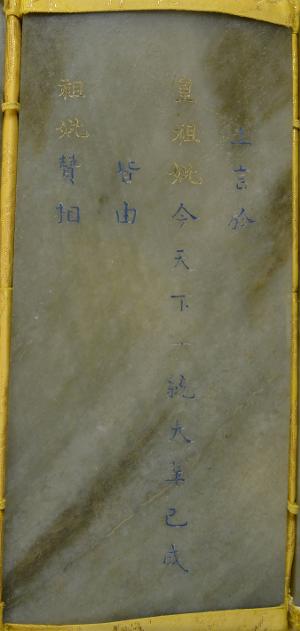 上言於
皇祖妣今天下一統大業已成
皆由
祖妣贊相